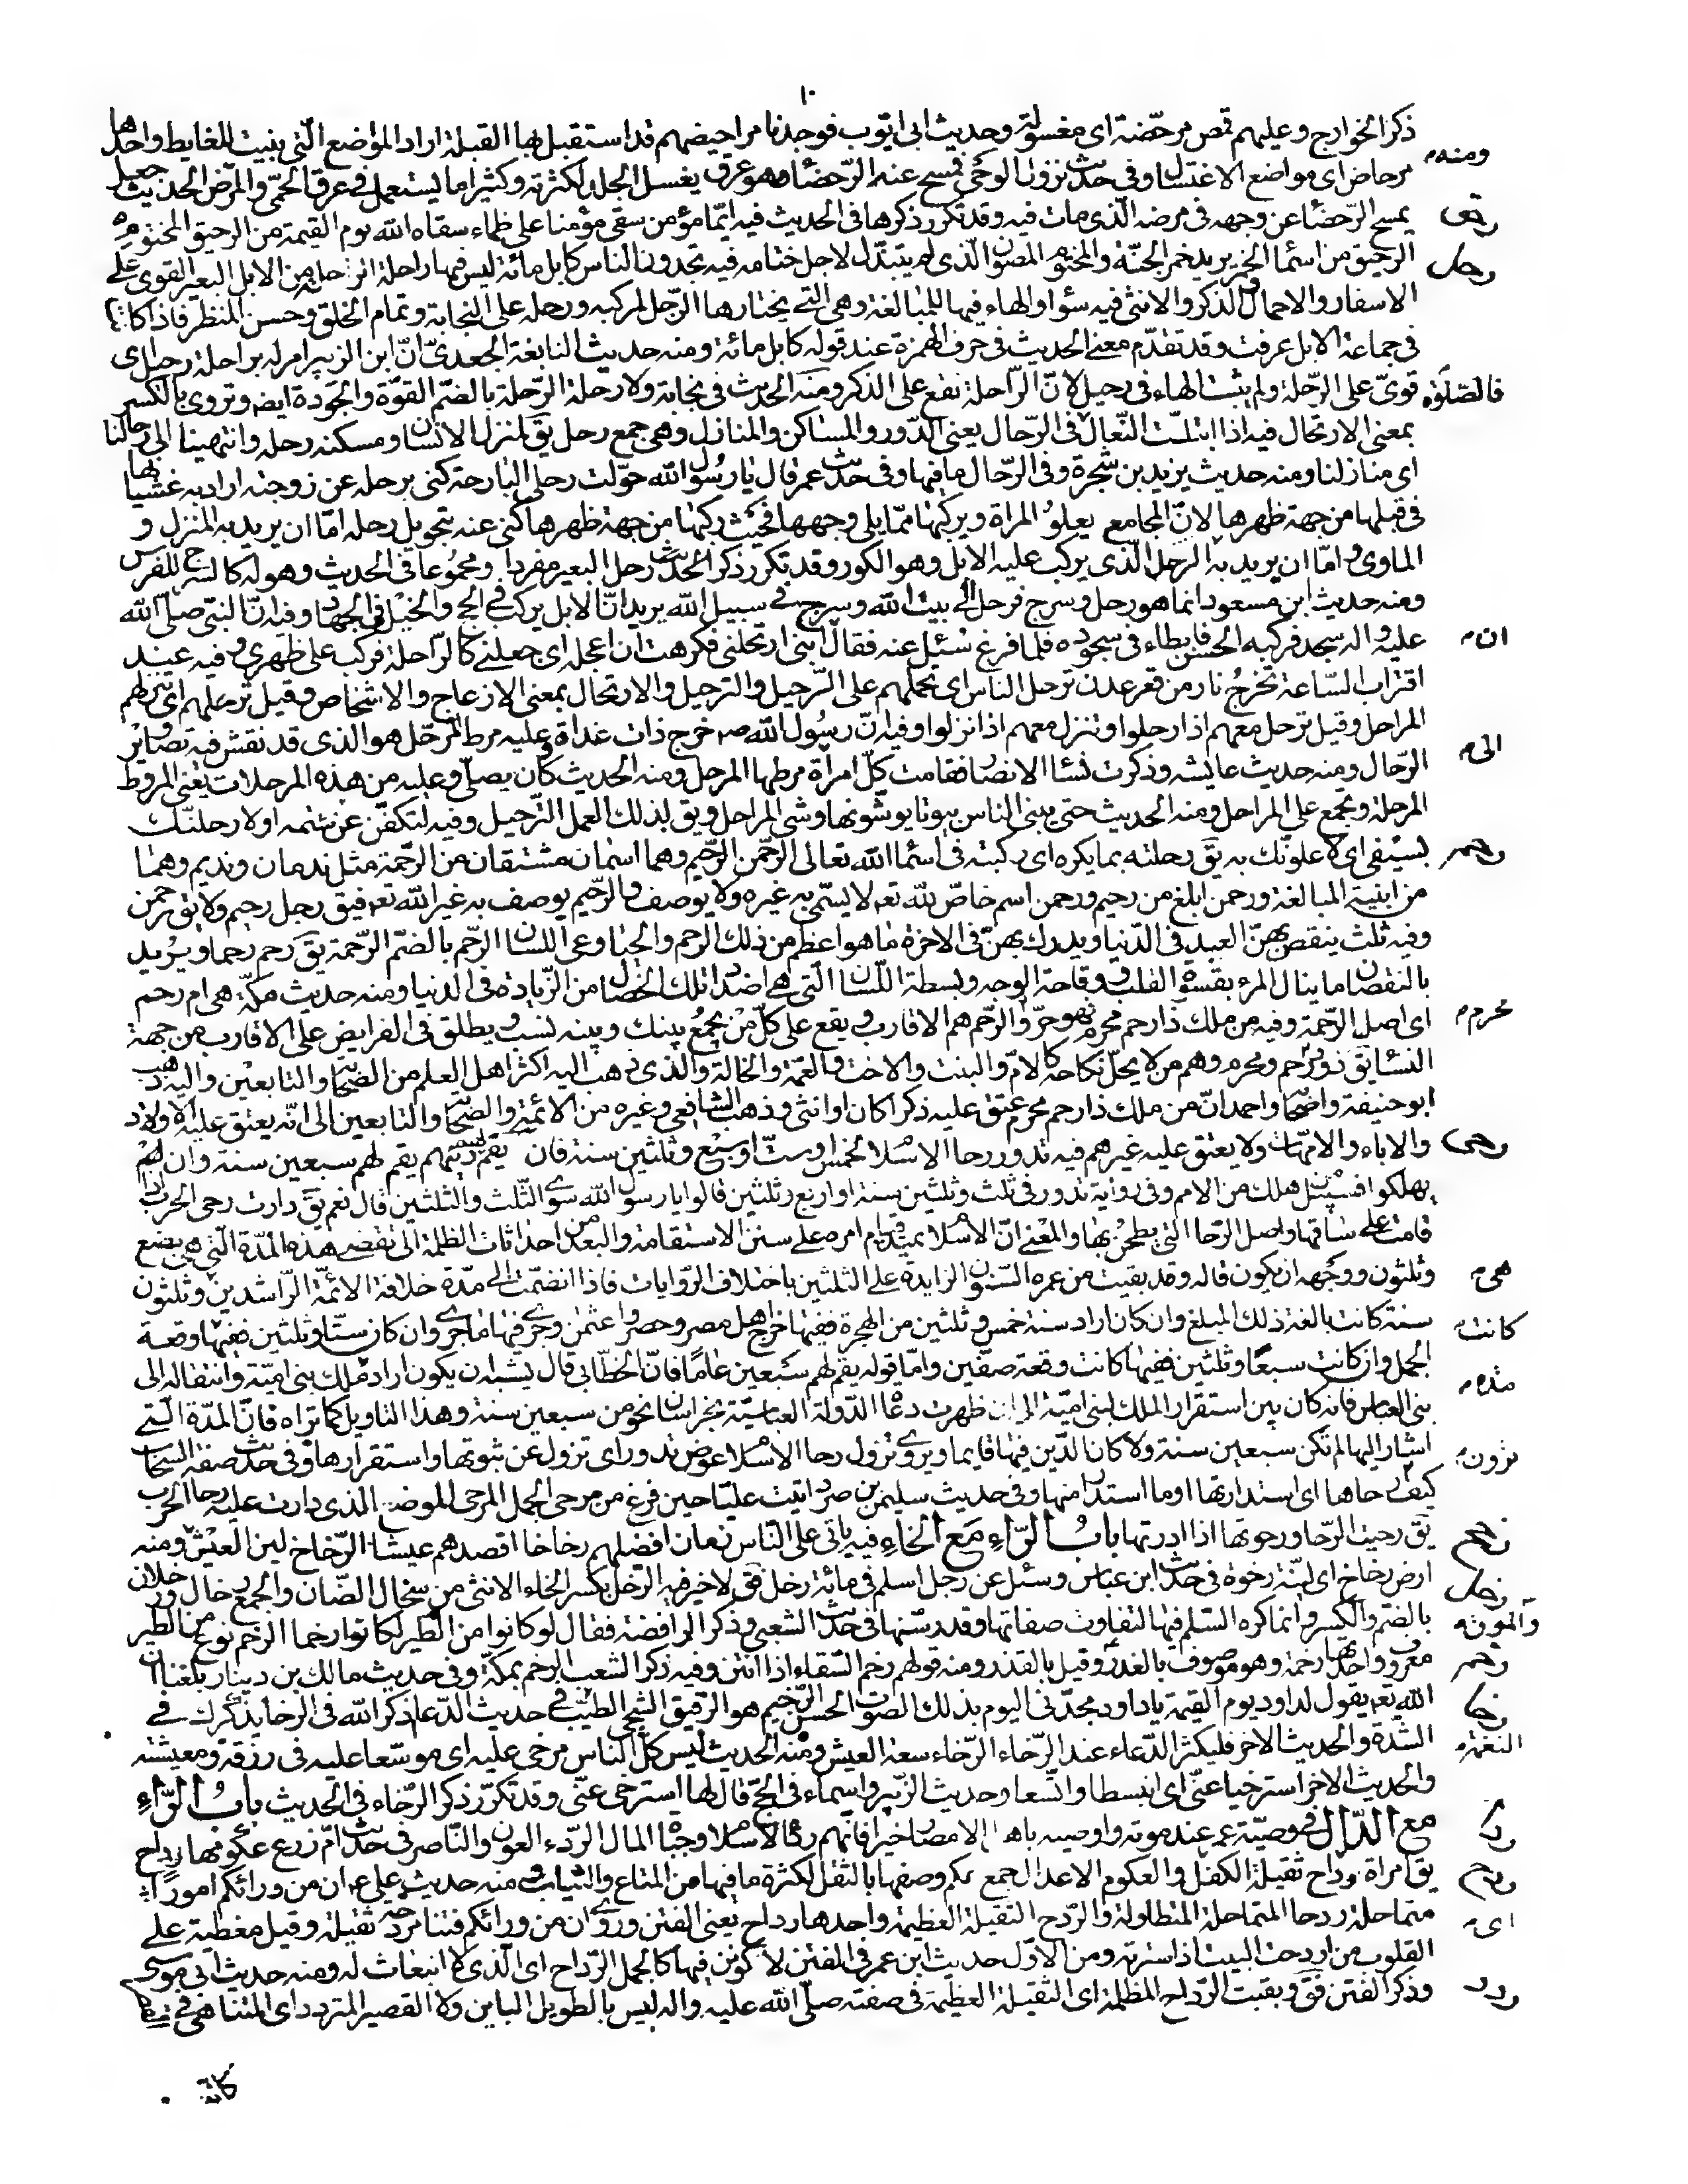 ١٠
ذكر الخوارج وعليهم قمص مرحّضة اى مغسولة وحديث ابى ايّوب فوجدنا مراحيضهم قد استقبل بها القبلة اراد المواضع الّتى بنيت للغايط واحدها
ومنه
مرحاض اى مواضع الاغتسال وفى حديث نزول الوحى فمسح عنه الرّحضاء هو عرق يغسل الجلد لكثرته وكثيرا ما يستعمل فى عرق الحمّى والمرض الحديث جعل
رحق
يمسح الرّحضاء عن وجهه فى مرضه الّذى مات فيه وقد تكرر ذكرها فى الحديث فيه ايّما مؤمن سقى مؤمنا على ظماء سقاه الله يوم القيمة من الرحيق المختوم
رحل
الرحيق من اسماء الخمر يريد خمر الجنّة والمختوم المصون الّذى لم يبتذل لاجل ختامه فيه تجدون الناس كابل مائة ليس فيها راحلة الراحلة من الابل البعير القوى على
الاسفار والاحمال والذكر والانثى فيه سواء والهاء فيها للمبالغة وهى التى يختارها الرّجل لمركبه ورحله على النجابة وتمام الخلق وحسن المنظر فاذا كانت
فى جماعة الابل عرفت وقد تقدّم معنى الحديث فى حرف الهمزة عند قوله كابل مائة ومنه حديث النابغة الجعدىّ انّ ابن الزبير امر له براحلة رحيل اى
فالصّلوة
قوىّ على الرّحلة ولم يثبت الهاء فى رحيل لانّ الرّاحلة تقع على الذكر ومنه الحديث فى نجابة ولا رحلة الرّحلة بالضّم القوّة والجودة ايض وتروى بالكسر
بمعنى الارتحال فيه اذا ابتلّت النّعال فى الرّحال يعنى الدّور والمساكن والمنازل وهى جمع رحل يق لمنزل الانسان ومسكنه رحله وانتهينا الى رحالنا
اى منازلنا ومنه حديث يزيد بن شجرة وفى الرّحال ما فيها وفى حديث عمر قال يا رسول الله حوّلت رحلى البارحة كنى برحله عن زوجته اراد به غشيانها
فى قبلها من جهة ظهرها لانّ المجامع يعلو المراة ويركبها ممّا يلى وجهها فحيث ركبها من جهة ظهرها كنى عنه بتحويل رحله امّا ان يريد به المنزل و
الماوى وامّا ان يريد به الرحل الّذى يركب عليه الابل وهو الكور وقد تكرر ذكر رحل البعير مفردا ومجموعا فى الحديث وهو له كالسرج للفرس
ومنه حديث ابن مسعود انما هو رحل وسرج فرحل الى بيت الله وسرج فى سبيل الله يريد انّ الابل يركب فى الحج والخيل فى الجهاد وفيه انّ النبىّ صلّى الله
ان
عليه واله سجد فركبه الحسن فابطاء فى سجوده فلما فرغ سئل عنه فقال ابنى ارتحلنى فكرهت ان اعجله اى جعلنى كالرّاحلة فركب على ظهرى وفيه عند
اقتراب السّاعة تخرج نار من قعر عدن ترحل الناس اى تحملهم على الرّحيل والترحيل والارتحال بمعنى الازعاج والاشخاص وقيل ترحلهم اى تنزلهم
المراحل وقيل ترحل معهم اذا رحلوا وتنزل معهم اذا نزلوا وفيه انّ رسول الله ص خرج ذات غداة وعليه مرط مرحّل هو الذى قد نقش فيه تصاوير
الى
الرّحال ومنه حديث عايشه وذكرت نساء الانصار فقامت كلّ امراة الى مرطها المرحل ومنه الحديث كان يصلّى وعليه من هذه المرحلات يعنى المروط
المرحلة وتجمع على المراحل ومنه الحديث حتى يبنى الناس بيوتا يوشونها وشى المراحل ويق لذلك العمل التّرحيل وفيه لتكفّن عن شتمه اولارحلنّك
رحم
بسيفى اى لاعلونّك به يق رحلته بما يكره اى ركبته فى اسماء الله تعالى الرّحمن الرّحيم وهما اسمان مشتقان من الرّحمة مثل ندمان ونديم وهما
من ابنية المبالغة ورحمن ابلغ من رحيم ورحمن اسم خاصّ لله تع لا يسمّى به غيره ولا يوصف والرّحيم يوصف به غير الله تع فيق رجل رحيم ولا يق رحمن
وفيه ثلث ينقص بهنّ العبد فى الدّنيا ويدرك بهنّ فى الاخرة ما هو اعظم من ذلك الرحم والحياء وعى اللسان الرّحم بالضّم الرّحمة يق رحم رحما ويريد
بالنقصان ما ينال المرء بقسوة القلب ووقاحة الوجه وبسطة اللّسان الّتى هى اضداد تلك الخصال من الزّيادة فى الدنيا ومنه حديث مكّة هى ام رحم
محرم
اى اصل الرّحمة وفيه من ملك ذا رحم محرم فهو حرّ والرّحم هم الاقارب ويقع على كلّ من يجمع بينك وبينه نسب ويطلق فى الفرايض على الاقارب من جهة
النساء يق ذو رحم ومحرم وهم من لا يحلّ نكاحه كالامّ والبنت والاخت والعمّة والخالة والّذى ذهب اليه اكثر اهل العلم من الصّحابة والتابعين واليه ذهب
ابو حنيفة واصحابه واحمد انّ من ملك ذا رحم محرم عتق عليه ذكرا كان او انثى وذهب الشافعى وغيره من الائمة والصّحابة والتابعين الى انّه يعتق عليه الاولاد
رحى
والاباء والامّهات ولا يعتق عليه غيرهم فيه تدور رحا الاسلام لخمس او ستّ او سبع وثلثين سنة فان يقم دينهم يقم لهم سبعين سنة وان هم
يهلكوا فسبيل من هلك من الامم وفى رواية تدور فى ثلث وثلثين سنة او اربع وثلثين قالوا يا رسول الله سوى الثّلث والثلثين قال نعم يق دارت رحى الحرب اذا
قامت على ساقها واصل الرّحا التى يطحن بها والمعنى انّ الاسلام يمتد قيام امره على سنن الاستقامة والبعد من احداثات الظلمة الى تقضى هذه المدّة الّتى هى بضع
هى
وثلثون ووجهه ان يكون قاله وقد بقيت من عمره السّنون الزايدة على الثلثين باختلاف الرّوايات فاذا انضمّت الى مدّة خلافة الائمّة الرّاشدين وثلثون
كانت
سنة كانت بالغة ذلك المبلغ وان كان اراد سنة خمس وثلثين من الهجرة ففيها خرج اهل مصر وحصروا عثمن وجرى فيها ما جرى وان كان ستّا وثلثين ففيها وقعة
الجمل وان كانت سبعًا وثلثين ففيها كانت وقعة صفّين وامّا قوله يقم لهم سبعين عامًا فانّ الخطّابى قال يشبه ان يكون اراد ملك بنى اميّة وانتقاله الى
مدة
بنى العباس فانه كان بين استقرار الملك لبنى اميّة الى ان ظهرت دعاة الدّولة العباسيّة بخراسان نحو من سبعين سنة وهذا التاويل كما تراه فانّ المدّة الّتى
تزون
اشار اليها لم تكن سبعين سنة ولا كان الدّين فيها قايما ويروى تزول رحا الاسلام عوض تدور اى تزول عن ثبوتها واستقرارها وفى حديث صفة السّحاب
كيف ترون رحاها اى استدارتها او ما استدار منها وفى حديث سليمن بن صرد اتيت عليّا حين فرغ من مرحى الجمل المرحى الموضع الذى دارت عليه رحا الحرب
رخخ
يق رحيت الرّحا ورحوتها اذا ادرتها باب الرّاء مع الخاء فيه ياتى على النّاس زمان افضلهم رخاخا اقصدهم عيشا الرّخاخ لين العيش ومنه
رخل
ارض رخاخ اى ليّنة رخوة فى حديث ابن عباس وسئل عن رجل اسلم فى مائة رخل فق لا خير فيه الرّخل بكسر الخاء الانثى من سخال الضّان والجمع رخال ورخلان
بالضمّ والكسر وانما كره السّلم فيها لتفاوت صفاتها وقدر سنّها فى حديث الشعبى وذكر الرافضة فقال لو كانوا من الطّير لكانوا رخما الرّخم نوع من الطير
رخم
معروف واحدتها رخمة وهو موصوف بالغدر وقيل بالقذر ومنه قولهم رخم السّقاء اذا انتن وفيه ذكر الشعب الرخم بمكّة وفى حديث مالك بن دينار بلغنا انّ
رخا
الله تع يقول لداود يوم القيمة يا داود مجدّنى اليوم بذلك الصّوت الحسن الرّخيم هو الرّقيق الشجى الطيّب فى حديث الدّعاء اذكر الله فى الرخاء يذكرك فى
الشدّة والحديث الاخر فليكثر الدّعاء عند الرّخاء الرّخاء سعة العيش ومنه الحديث ليس كلّ الناس مرخى عليه اى موسّعا عليه فى رزقه ومعيشته
والحديث الاخر استرخيا عنّى اى انبسطا واتّسعا وحديث الزّبير واسماء فى الحجّ قال لها استرخى عنّى وقد تكرّر ذكر الرّخاء فى الحديث باب الرّاء
ردأ
مع الدّال فى وصيّة عمر عند موته واوصيه باهل الامصار خيرا فانّهم ردء الاسلام وجباة المال الرّدء العون والنّاصر فى حديث امّ زرع عكومها رداح
ردح
يق امراة رداح ثقيلة الكفل والعكوم الاعدال جمع عكم وصفها بالثقل لكثرة ما فيها من المتاع والثياب ومنه حديث على ع ان من ورائكم امورًا
اى
متماحلة ردحا المتماحلة المتطاولة والرّدح الثقيلة العظيمة واحدها رداح يعنى الفتن وروى ان من ورائكم فتنا مردحة ثقيلة وقيل مغطية على
القلوب من اردحت البيت اذا سترته ومن الاوّل حديث ابن عمر فى الفتن لاكونن فيها كالجمل الرّداح اى الّذى لا انبعاث له ومنه حديث ابى موسى
ردد
وذكر الفتن فق وبقيت الرّداح المظلمة اى الثقيلة العظيمة فى صفته صلّى الله عليه واله ليس بالطويل الباين ولا القصير المتردد اى المتناهى فى